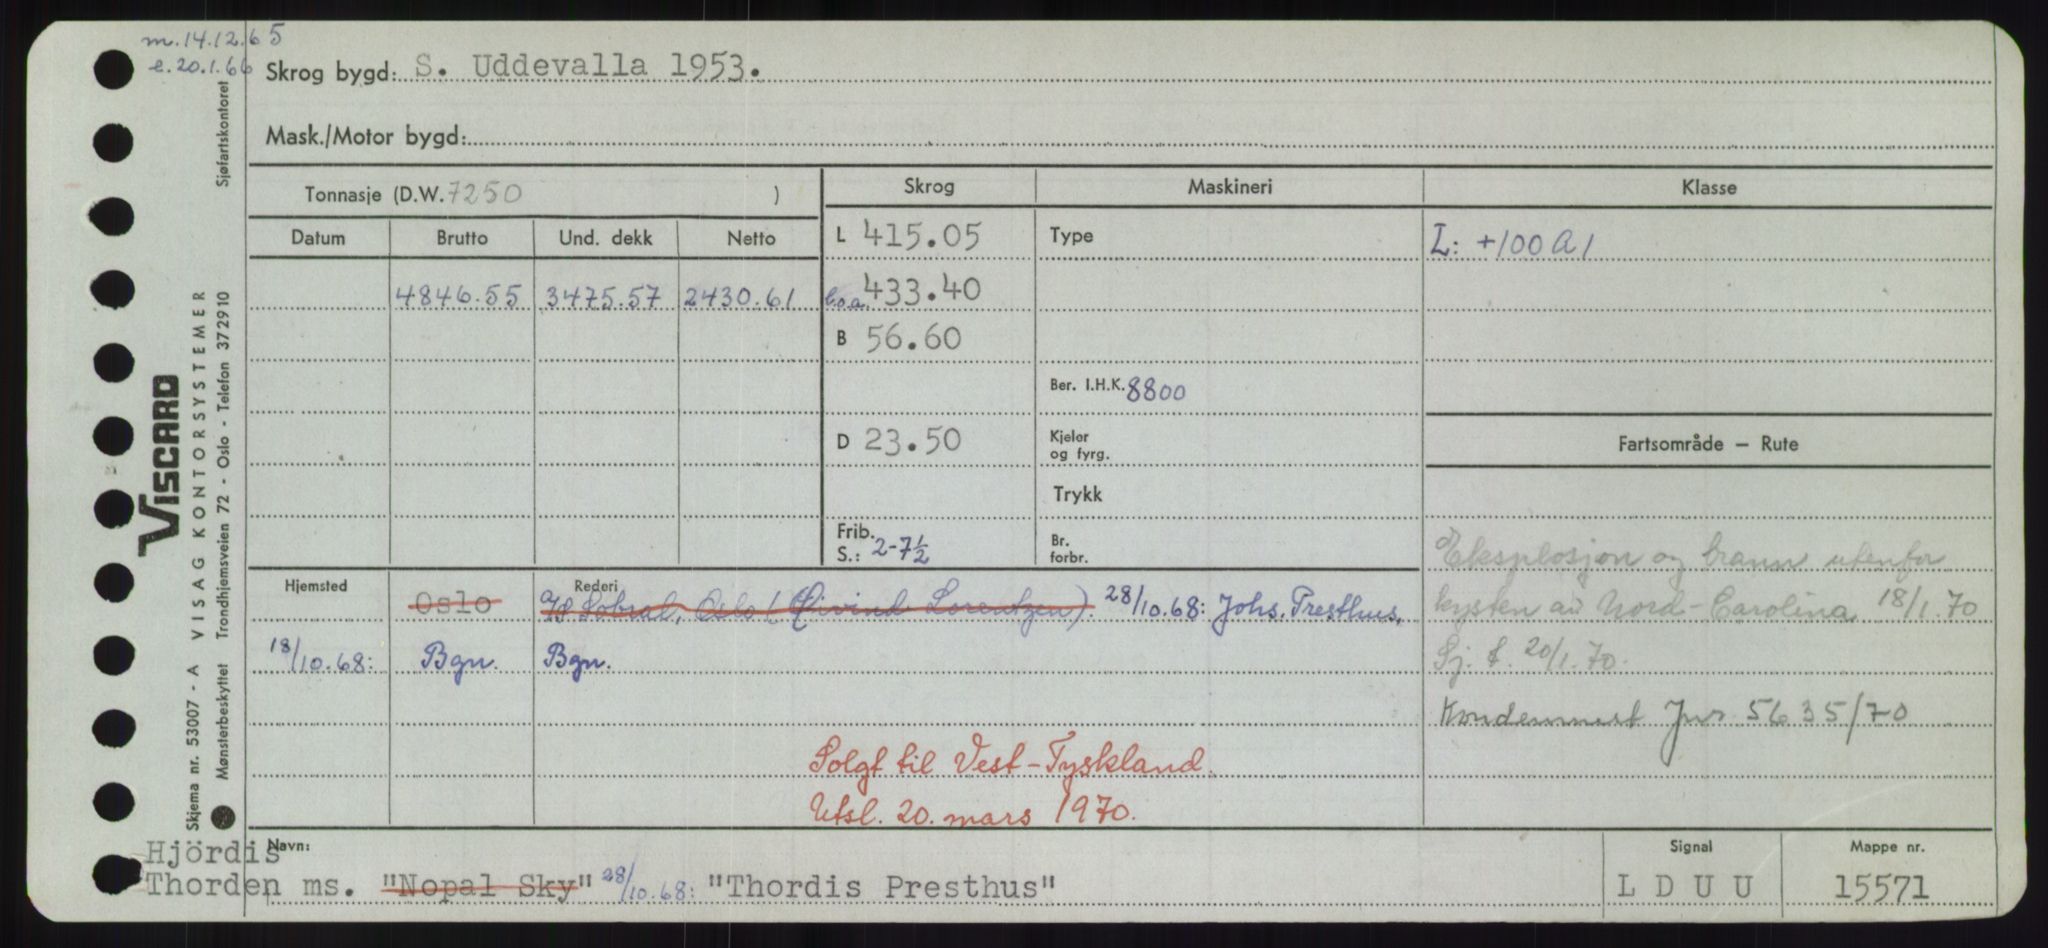 m. 14.12.65
e. 20.1.66
Skrog bygd: S. Uddevalla 1953.
Mask./Motor bygd:
Tonnasje (D.W. 7250 )
Skrog Maskineri Klasse
Datum Brutto Und. dekk Netto
L 415.05 Type L: +100 A 1
4846.55 3475.57 2430.61 l.o.a. 433.40
B 56.60
Ber. I.H.K. 8800
D 23.50 Kjeler og fyrg. Fartsområde — Rute
Trykk
Frib. S.: 2-7½ Br. forbr.
Eksplosjon og brann utenfor
kysten av Nord-Carolina 18/1.70
Sj. f. 20/1.70.
Kondemnert Jnr 5635/70
Hjemsted Rederi
Oslo A/S Sobral, Oslo (Øivind Lorentzen). 28/10.68: Johs. Presthus,
18/10.68: Bgn. Bgn.
Solgt til Vest-Tyskland.
Utsl. 20. mars 1970.
Navn: Signal Mappe nr.
Hjördis
Thorden ms. "Nopal Sky" 28/10.68: "Thordis Presthus" L D U U 15571
VISCARD
Skjema nr. 53007 - A VISAG KONTORSYSTEMER
Mønsterbeskyttet Trondhjemsveien 72 - Oslo - Telefon 372910
Sjøfartskontoret